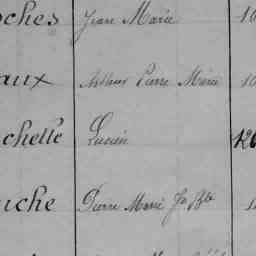 oches Jean Marie 10
aux Arthur Pierre Marie 10
chelle Lucien 126
uche Pierre Marie Jn Bte 1